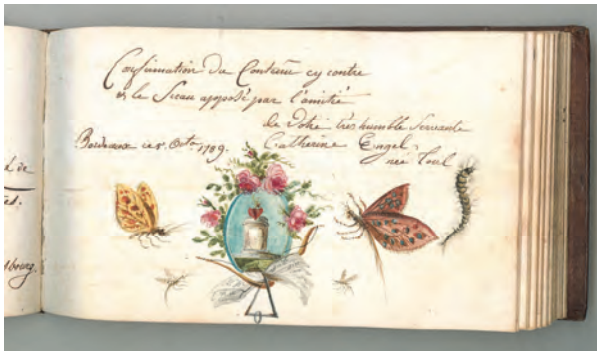 Confirmation du Contenu cy contre
& le Sceau apposé par l'amitié
de Votre très humble Servante
Bordeaux ce Octo. 1789.
Catherine Engel
née
de
sbourg.